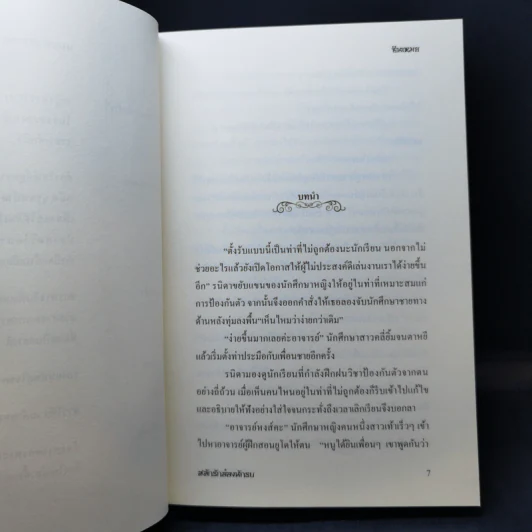 บทนำ
"ตั้งรับแบบนี้เป็นท่าที่ไม่ถูกต้องนะนักเรียน นอกจากไม่
ช่วยอะไรแล้วยังเปิดโอกาสให้ผู้ไม่ประสงค์ดีเล่นงานเราได้ง่ายขึ้น
อีก" รนิดาขยับแขนของนักศึกษาหญิงให้อยู่ในท่าที่เหมาะสมแก่
การป้องกันตัว จากนั้นจึงออกคำสั่งให้เธอลองจับนักศึกษาชายทาง
ด้านหลังทุ่มลงพื้น "เห็นไหมว่าง่ายกว่าเดิม"
"ง่ายขึ้นมากเลยค่ะอาจารย์" นักศึกษาสาวคลี่ยิ้มจนตาหยี
แล้วเริ่มตั้งท่าประมือกับเพื่อนชายอีกครั้ง
รนิดามองดูนักเรียนที่กำลังฝึกฝนวิชาป้องกันตัวจากตน
อย่างถี่ถ้วน เมื่อเห็นคนไหนอยู่ในท่าที่ไม่ถูกต้องก็รีบเข้าไปแก้ไข
และอธิบายให้ฟังอย่างใส่ใจจนกระทั่งถึงเวลาเลิกเรียนจึงบอกลา
"อาจารย์หงส์คะ" นักศึกษาหญิงคนหนึ่งสาวเท้าเร็วๆ เข้า
ไปหาอาจารย์ผู้ฝึกสอนยูโดให้ตน "หนูได้ยินเพื่อนๆ เขาพูดกันว่า
7